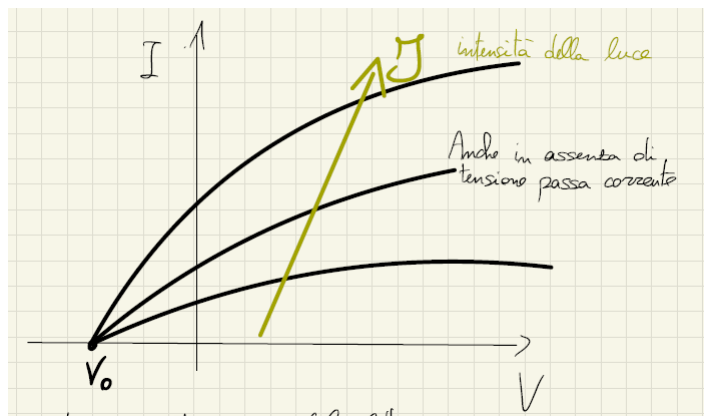 I
J
intensità della luce
Anche in assenza di
tensione passa corrente
V₀
V